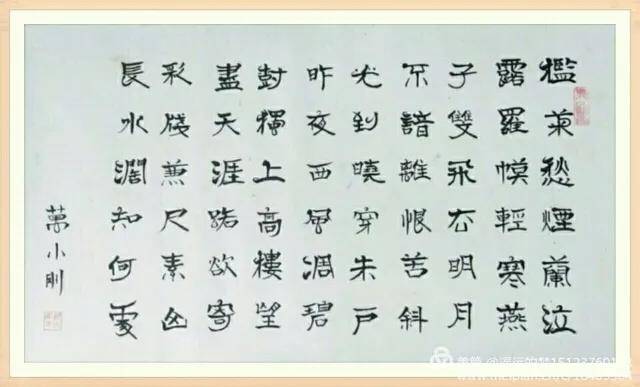 檻菊愁煙蘭泣
露羅幙輕寒燕
子雙飛去明月
不諳離恨苦斜
光到曉穿朱戶
昨夜西風凋碧
尌獨上高樓望
盡天涯路欲寄
彩牋兼尺素山
長水濶知何處
萬小剛
美篇 @遥远的梦